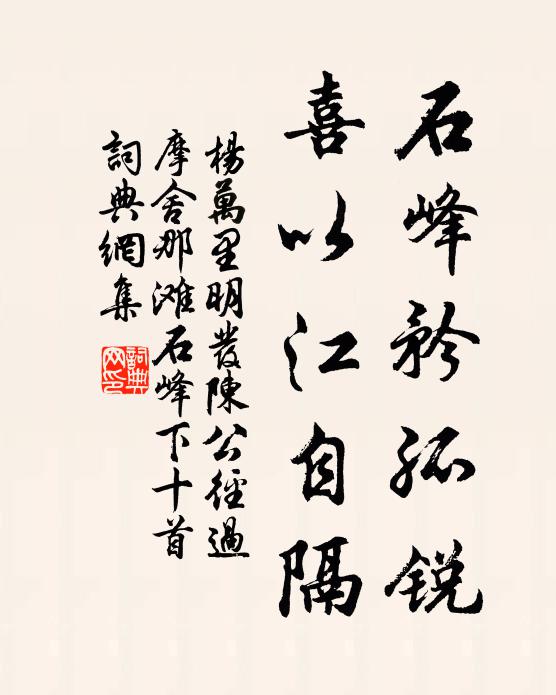 石峰矜孤锐
喜以江自隔
楊萬里明發陳公徑過
摩舍那滩石峰下十首
詞典網集
詞典網印